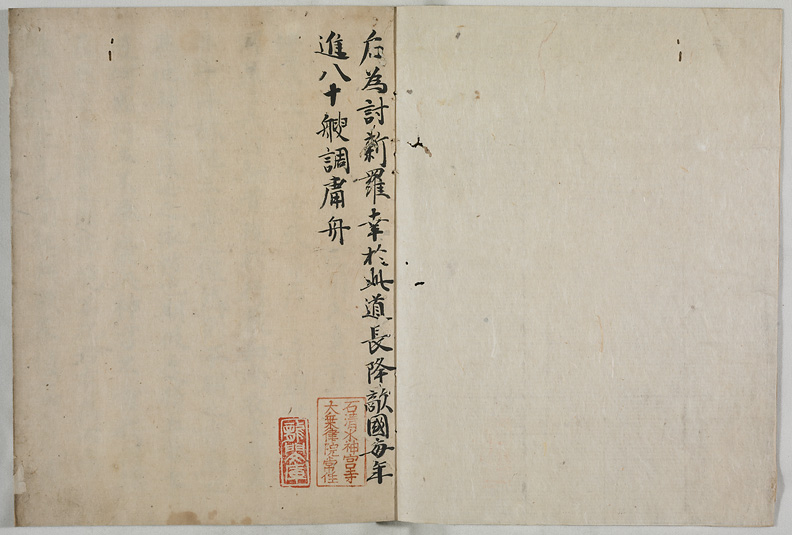 右為討新羅幸於此道長降敵國每年
進八十艘調庸舟
石清水神宮寺
大乗律院常住
龍門文庫